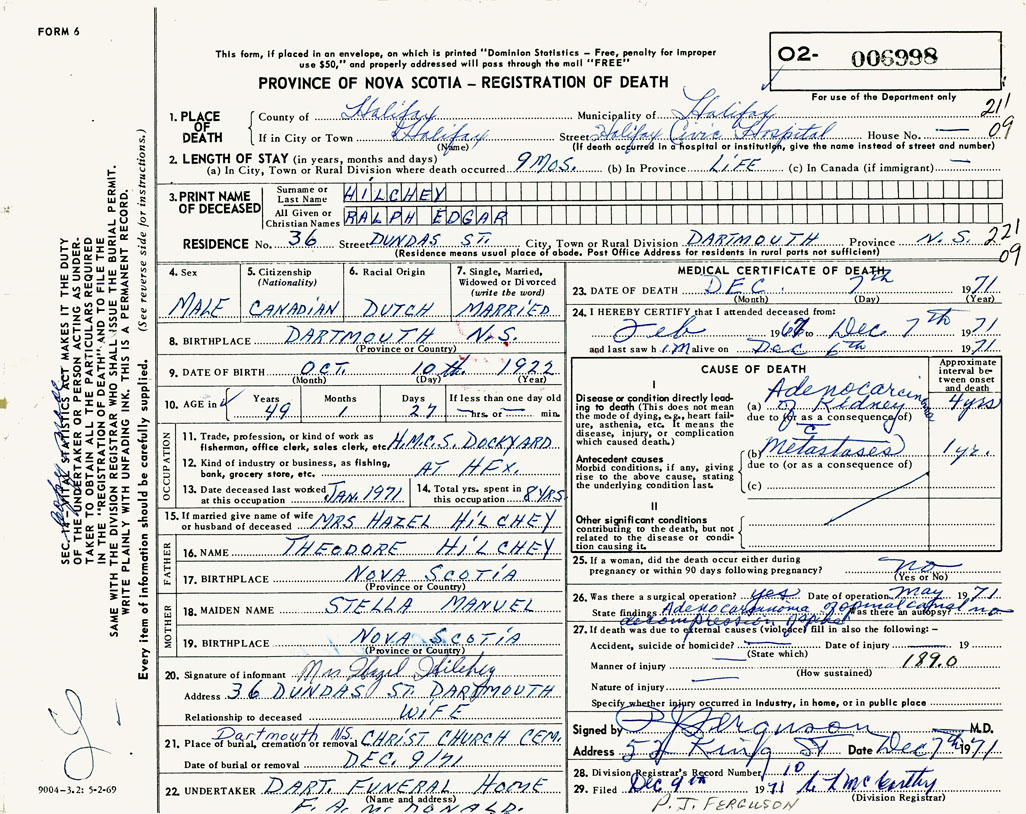 FORM 6
This form, if placed in an envelope, on which is printed "Dominion Statistics – Free, penalty for improper
use $50," and properly addressed will pass through the mail "FREE"
PROVINCE OF NOVA SCOTIA – REGISTRATION OF DEATH
O2- 006998
For use of the Department only
SEC. 14 - VITAL STATISTICS ACT MAKES IT THE DUTY
OF THE UNDERTAKER OR PERSON ACTING AS UNDER-
TAKER TO OBTAIN ALL THE PARTICULARS REQUIRED
IN THE "REGISTRATION OF DEATH" AND TO FILE THE
SAME WITH THE DIVISION REGISTRAR WHO SHALL ISSUE THE BURIAL PERMIT.
WRITE PLAINLY WITH UNFADING INK. THIS IS A PERMANENT RECORD.
Every item of information should be carefully supplied. (See reverse side for instructions.)
1. PLACE OF DEATH
County of Halifax Municipality of Halifax 211
If in City or Town Halifax Street Halifax Civic Hospital House No. — 09
(Name) (If death occurred in a hospital or institution, give the name instead of street and number)
2. LENGTH OF STAY (in years, months and days)
(a) In City, Town or Rural Division where death occurred 9 MOS. (b) In Province LIFE (c) In Canada (if immigrant) —
3. PRINT NAME OF DECEASED
Surname or Last Name HILCHEY
All Given or Christian Names RALPH EDGAR
RESIDENCE No. 36 Street DUNDAS ST. City, Town or Rural Division DARTMOUTH Province N.S. 221
09
(Residence means usual place of abode. Post Office Address for residents in rural parts not sufficient)
4. Sex MALE
5. Citizenship (Nationality) CANADIAN
6. Racial Origin DUTCH
7. Single, Married, Widowed or Divorced (write the word) MARRIED
8. BIRTHPLACE DARTMOUTH N.S.
(Province or Country)
9. DATE OF BIRTH OCT. 10 th. 1922
(Month) (Day) (Year)
10. AGE in Years 49 Months 1 Days 27 If less one than day old — hrs. or — min.
OCCUPATION
11. Trade, profession, or kind of work as
fisherman, office clerk, sales clerk, etc. H.M.C.S. DOCKYARD
12. Kind of industry or business, as fishing,
bank, grocery store, etc. AT HFX.
13. Date deceased last worked at this occupation JAN. 1971
14. Total yrs. spent in this occupation 8 YRS.
15. If married give name of wife
or husband of deceased MRS HAZEL HILCHEY
FATHER
16. NAME THEODORE HILCHEY
17. BIRTHPLACE NOVA SCOTIA
(Province or Country)
MOTHER
18. MAIDEN NAME STELLA MANUEL
19. BIRTHPLACE NOVA SCOTIA
(Province or Country)
20. Signature of informant Mrs Hazel Hilchey
Address 36 DUNDAS ST. DARTMOUTH
Relationship to deceased WIFE
Dartmouth NS.
21. Place of burial, cremation or removal CHRIST CHURCH CEM.
Date of burial or removal DEC. 9/71
22. UNDERTAKER DART. FUNERAL HOME
(Name and address)
F. A. McDONALD.
9004-3.2: 5-2-69
MEDICAL CERTIFICATE OF DEATH
23. DATE OF DEATH DEC. 7th 1971
(Month) (Day) (Year)
24. I HEREBY CERTIFY that I attended deceased from:
Feb 1967 to Dec 7th 1971
and last saw h im alive on Dec 6th 1971
CAUSE OF DEATH
Approximate interval between onset and death
I
Disease or condition directly leading to death (This does not mean the mode of dying, e.g., heart failure, asthenia, etc. It means the disease, injury, or complication which caused death.)
(a) Adenocarcinoma of Kidney 4 yrs
due to (or as a consequence of)
c
(b) Metastases 1 yr.
due to (or as a consequence of)
Antecedent causes
Morbid conditions, if any, giving rise to the above cause, stating the underlying condition last.
(c)
II
Other significant conditions
contributing to the death, but not related to the disease or condition causing it.
25. If a woman, did the death occur either during
pregnancy or within 90 days following pregnancy? no
(Yes or No)
26. Was there a surgical operation? yes Date of operation May 1971
State findings Adenocarcinoma of spinal canal Was there an autopsy? no
decompression
27. If death was due to external causes (violence) fill in also the following: –
Accident, suicide or homicide? — Date of injury — 19
(State which)
Manner of injury — 189.0
(How sustained)
Nature of injury —
Specify whether injury occurred in Industry, in home, or in public place
Signed by P J Ferguson M.D.
Address 52 King St Date Dec 7th 1971
28. Division Registrar's Record Number 10
29. Filed Dec 9th 1971 L McCarthy
(Division Registrar)
P. J. FERGUSON